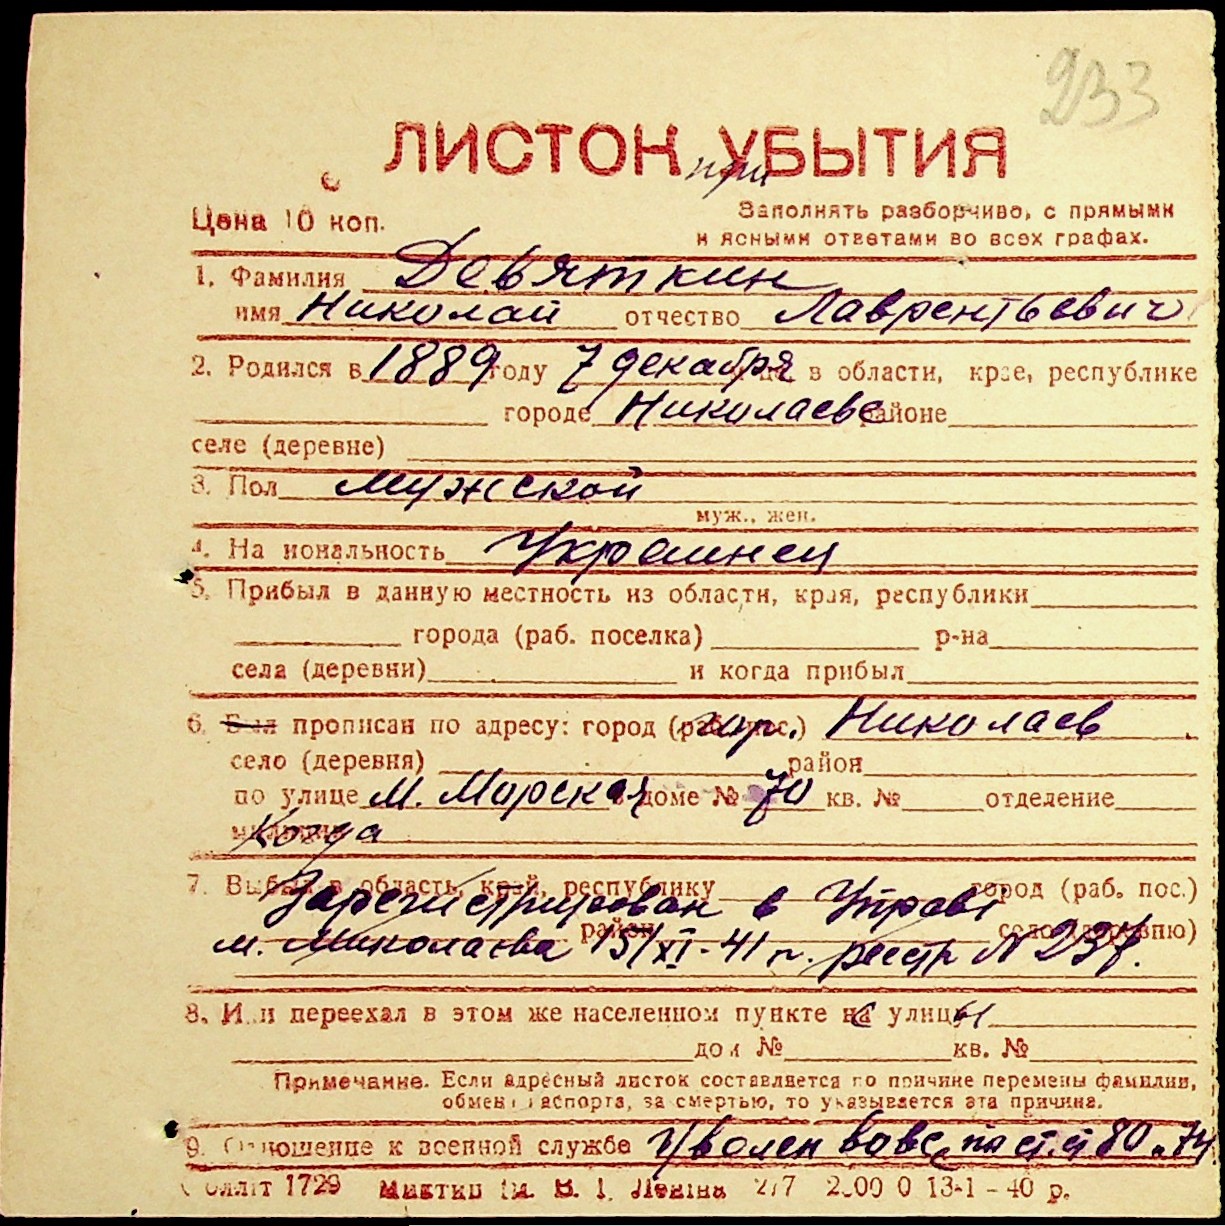 233
ЛИСТОК УБЫТИЯ
при
Цена 10 коп.
Заполнять разборчиво, с прямыми
и ясными ответами во всех графах.
1. Фамилия Девяткин
имя Николай отчество Лаврентьевич
2. Родился в 1889 году 7 декабря в области, крае, республике
городе Николаеве районе
селе (деревне)
3. Пол мужской
муж., жен.
4. Национальность Украинец
5. Прибыл в данную местность из области, края, республики
города (раб. поселка) р-на
села (деревни) и когда прибыл
6. Был прописан по адресу: город (раб. пос.) гор. Николаев
село (деревня) район
по улице М. Морская в доме № 70 кв. № отделение
милиции Когда
7. Выбыл в область, край, республику город (раб. пос.)
Зарегистрирован в Управі
район село (деревню)
м. Миколаєва 15/XI-41 р. реєстр N 237.
8. Или переехал в этом же населенном пункте на с улицы
дом № кв. №
Примечание. Если адресный листок составляется по причине перемены фамилии,
обмена паспорта, за смертью, то указывается эта причина.
9. Отношение к военной службе Уволен вовсе по ст. 80
Облліт 1729 2/7 13-1 - 40 р.